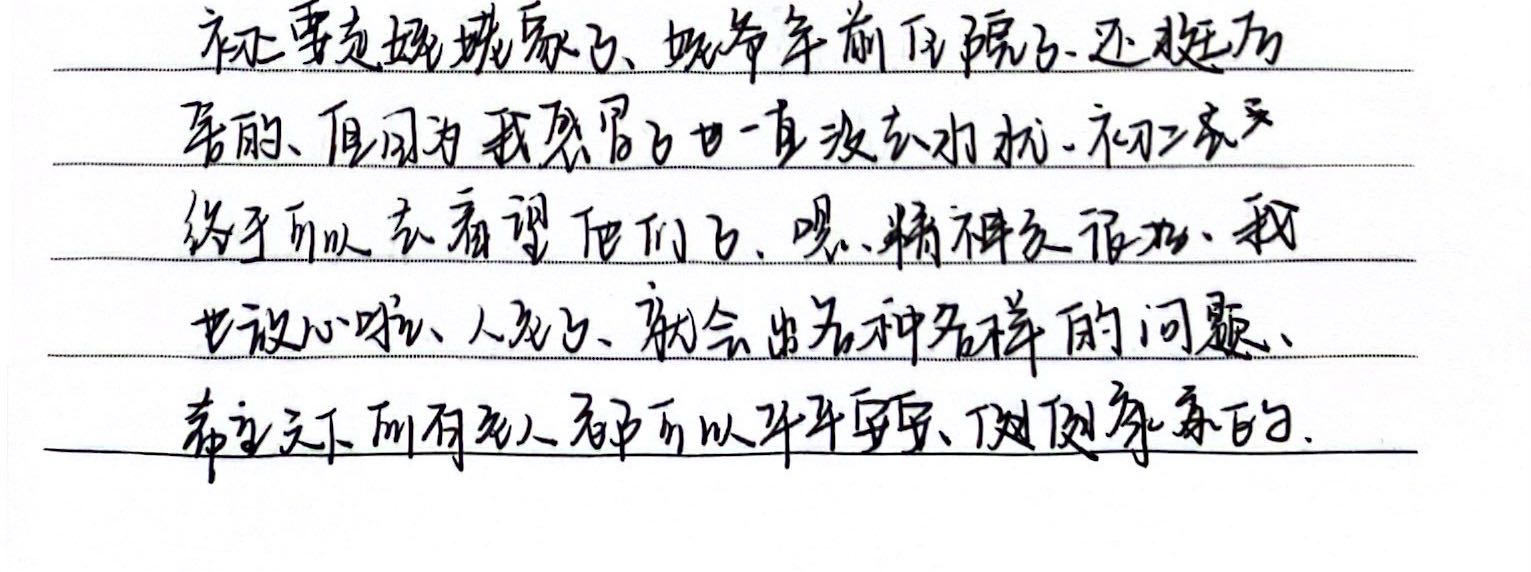 初二要走姥姥家了、姥爷年前住院了、还挺厉
害的、但因为我感冒了也一直没去。初二
终于可以去看望他们了、嗯、精神还很好、我
也放心啦、人老了、就会出各种各样的问题、
希望天下所有老人都可以平平安安、健健康康的.